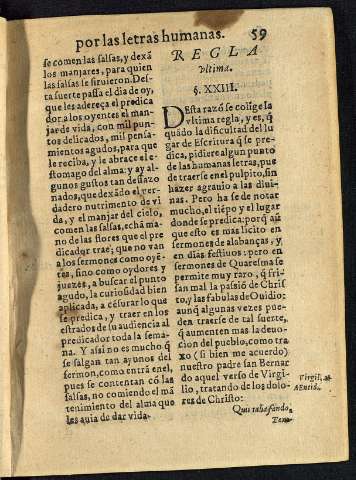 por las letras humanas. 59
se comen las salsas, y dexã
los manjares, para quien
las salsas se siruieron. Des-
ta suerte passa el dia de oy,
que les adereça el predica
dor a los oyentes el man-
jar de vida, con mil pun-
tos delicados, mil pensa-
mientos agudos, para que
le reciba, y le abrace el es-
tomago del alma: y ay al-
gunos gustos tan dessazo
nados, que dexãdo el ver-
dadero nutrimento de vi
da, y el manjar del cielo,
comen las salsas, echã ma-
no de las flores que el pre
dicador trae; que no van
a los sermones como oyẽ-
tes, sino como oydores y
juezes, a buscar el punto
agudo, la curiosidad bien
aplicada, a cẽsurar lo que
se predica, y traer en los
estrados de su audiencia al
predicador toda la sema-
na. Y assi no es mucho q̃
se salgan tan ayunos del
sermon, como entrã en el,
pues se contentan cõ las
salsas, no comiendo el mã
tenimiento del alma que
les auia de dar vida.
REGLA
vltima.
§. XXIII.
Desta razõ se colige la
vltima regla, y es, q̃
quãdo la dificultad del lu
gar de Escritura q̃ se pre-
dica, pidiere algun punto
de las humanas letras, pue
de traerse en el pulpito, sin
hazer agrauio a las diui-
nas. Pero ha se de notar
mucho, el tiẽpo y el lugar
donde se predica: porq̃ aũ
que esto es mas licito en
sermones de alabanças, y
en dias festiuos: pero en
sermones de Quaresma se
permite muy raro, q̃ fri-
san mal la passiõ de Chris
to, y las fabulas de Ouidio:
aunq̃ algunas vezes pue-
den traerse de tal suerte,
q̃ aumenten mas la deuo-
cion del pueblo, como tra
xo (si bien me acuerdo)
nuestro padre san Bernar
do aquel verso de Virgi-
lio, tratando de los dolo-
res de Christo:
Virgil.
Æneid.
Quis talia fando,